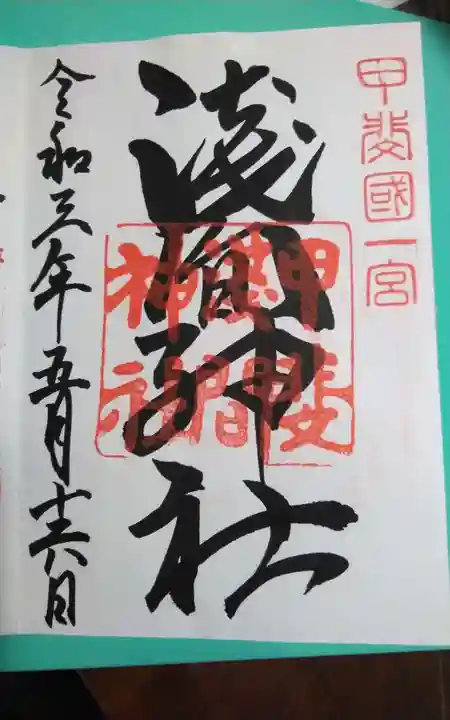 甲斐國一宮
浅間神社
甲斐
浅間
神社
令和三年五月十六日